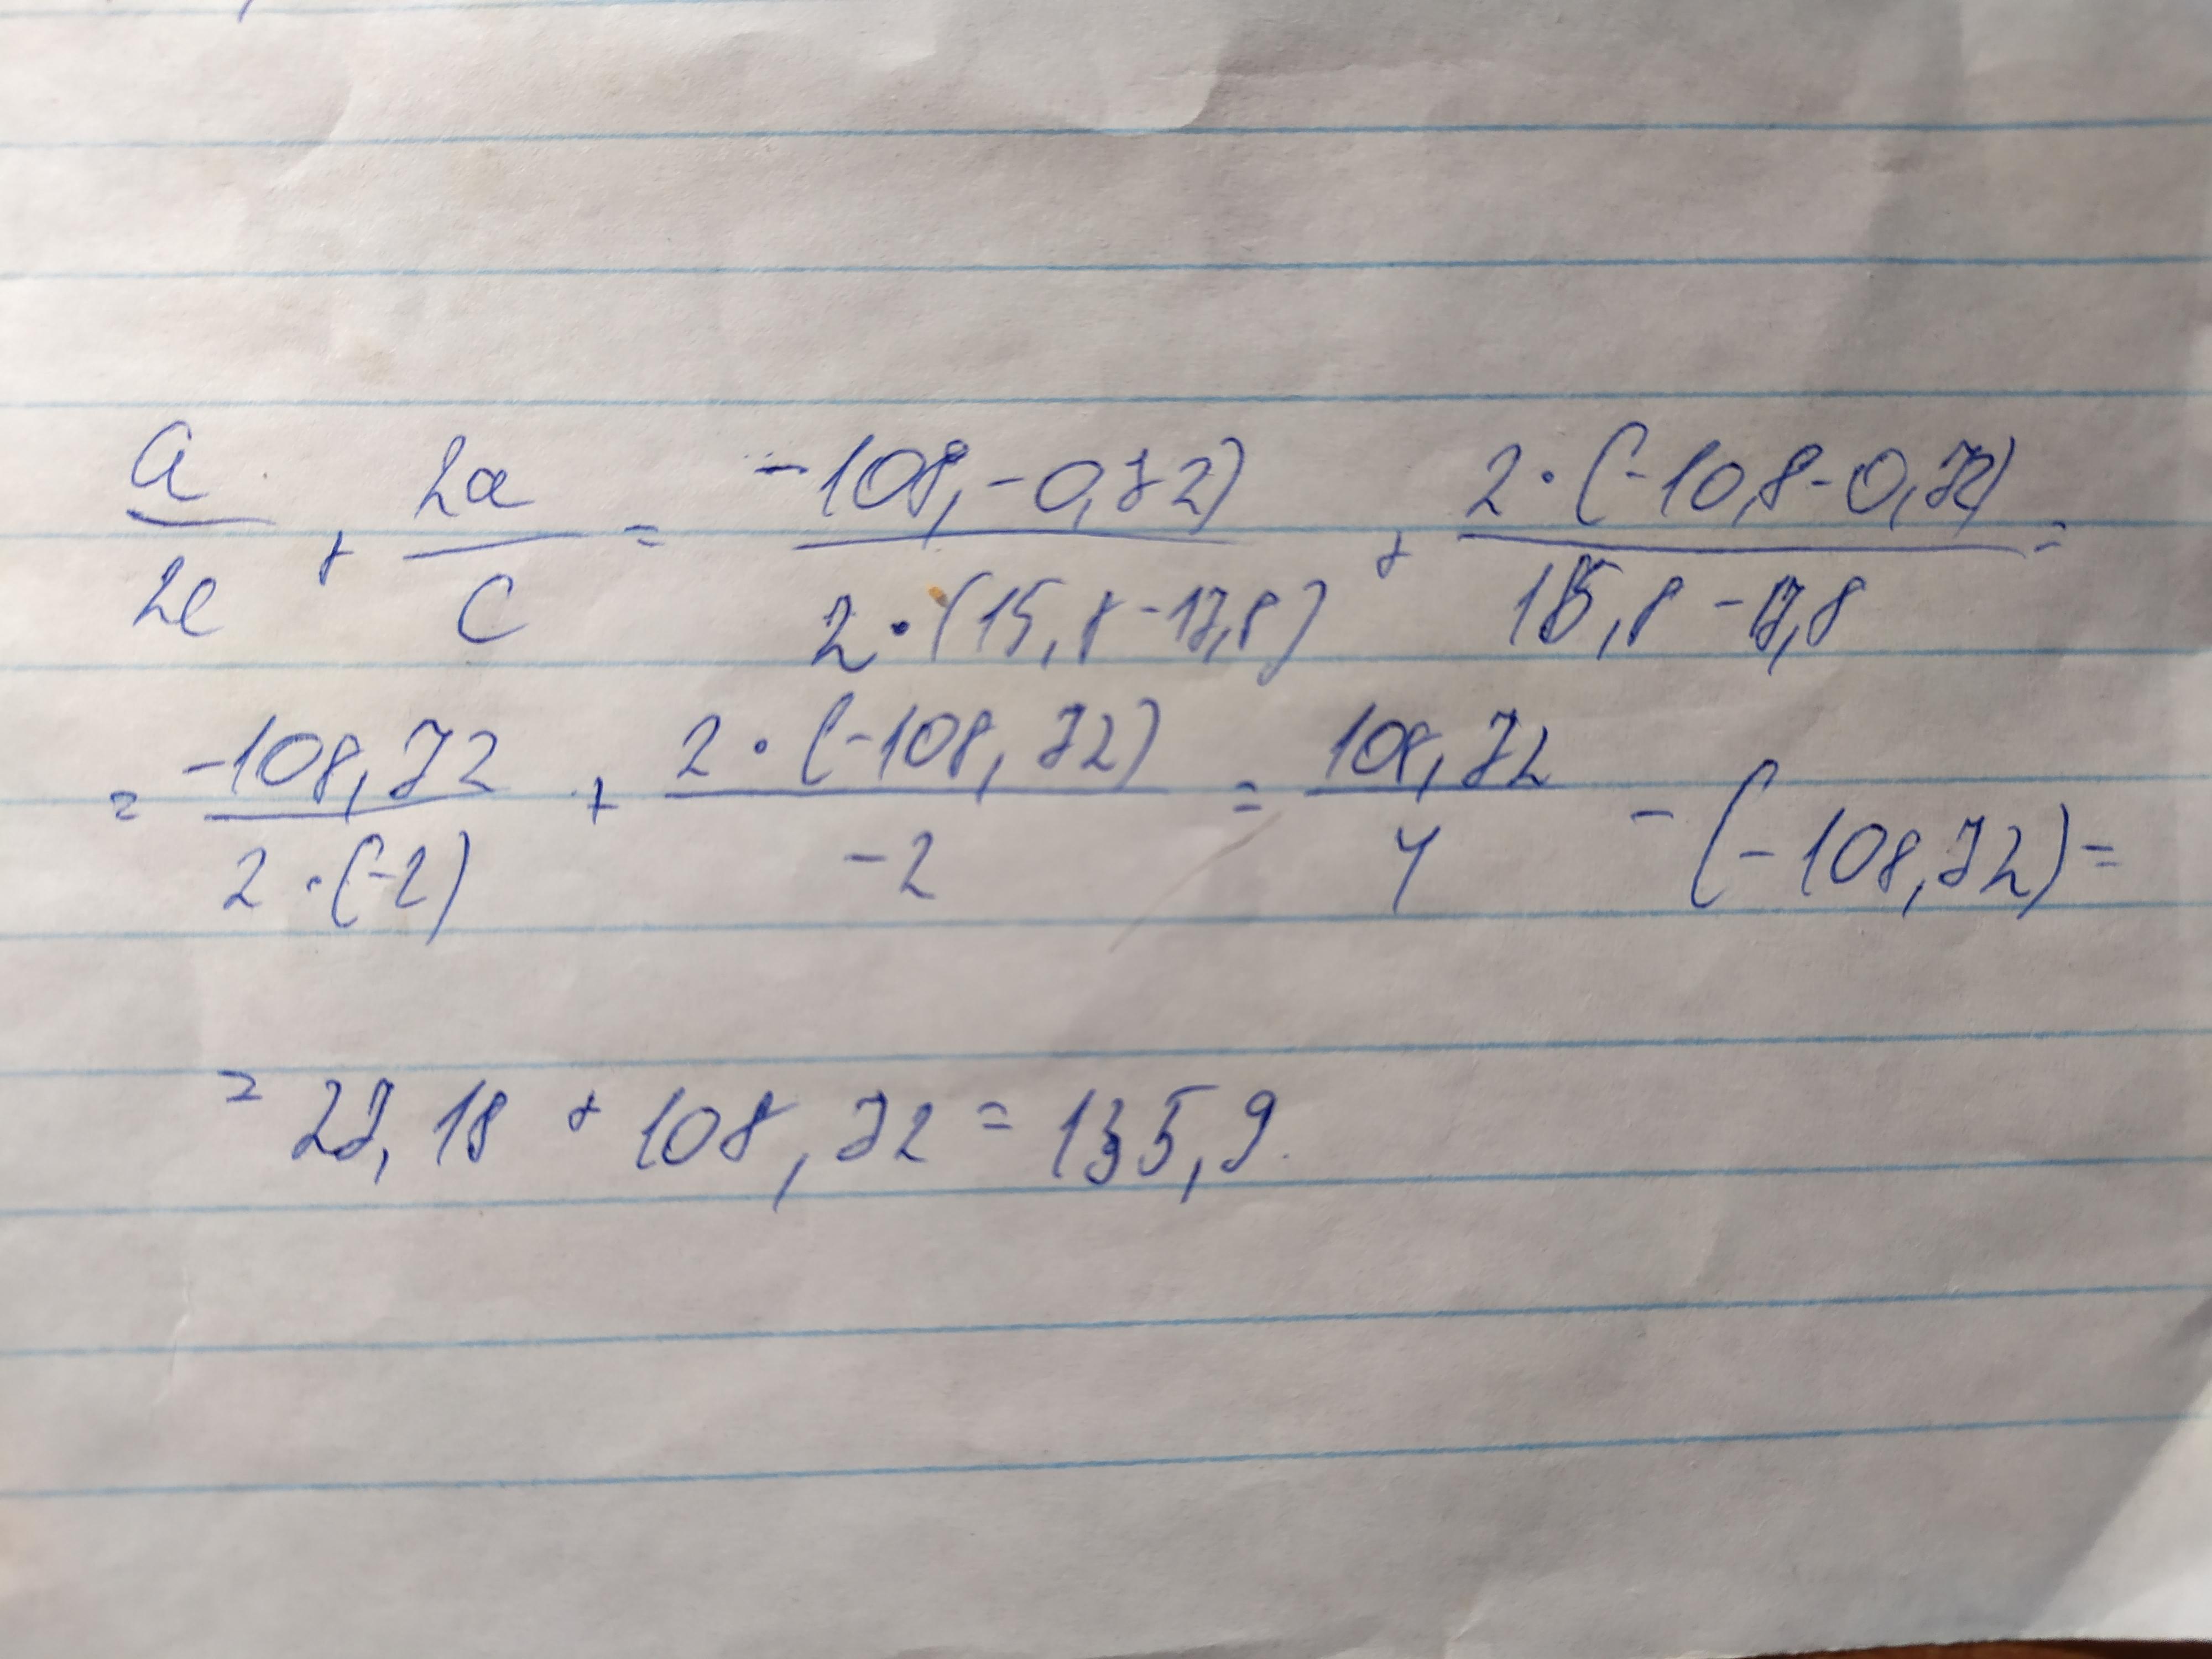 a/2c + 2a/c = -108,-0,72)/2·(15,8-17,8) + 2·(-10,8-0,72)/15,8-17,8 =
= -108,72/2·(-2) + 2·(-108,72)/-2 = 108,72/4 - (-108,72) =
= 27,18 + 108,72 = 135,9.